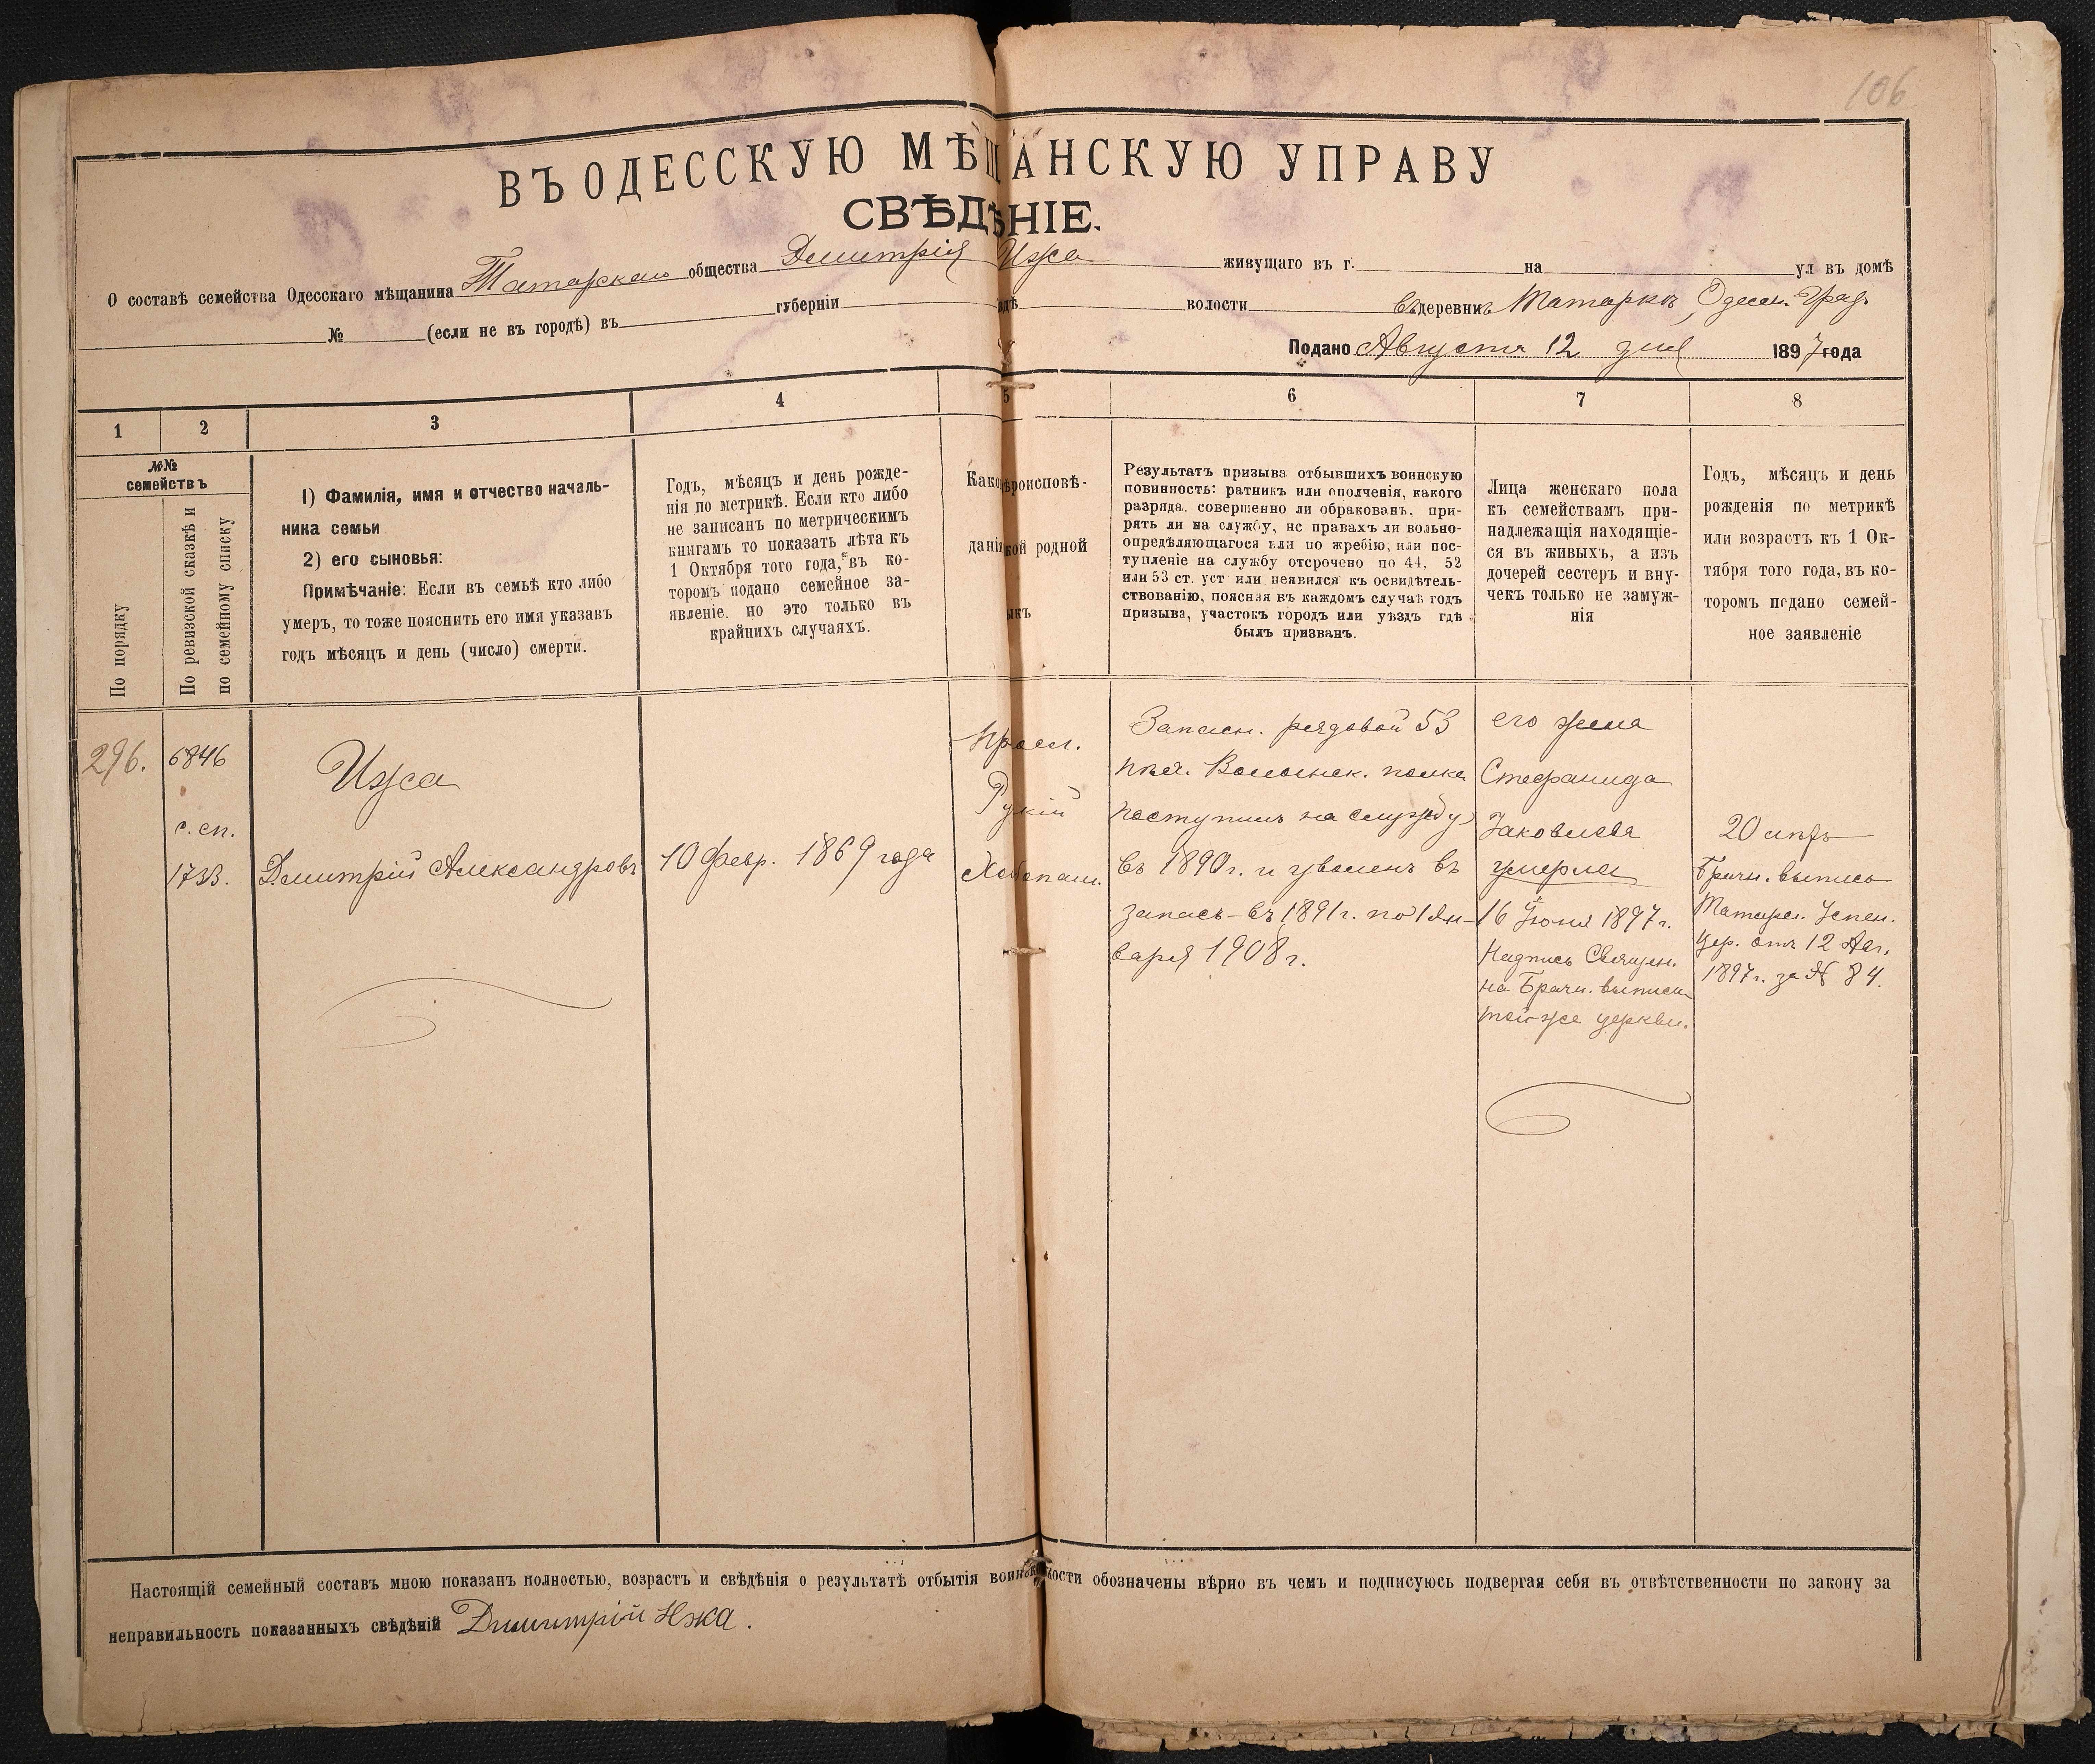 106
ВЪ ОДЕССКУЮ МѢЩАНСКУЮ УПРАВУ
СВѢДѢНІЕ.
О составѣ семейства Одесскаго мѣщанина Татарскаго общества Дмитрія Ижа живущаго въ г. на ул въ домѣ
№ (если не въ городѣ) въ губерніи здѣ волости въ деревни Татаркѣ, Одесск. Град.
Подано Августа 12 дня 1897 года
1 2 3 4 5 6 7 8
№№ семействъ
По порядку
По ревизской сказкѣ и
по семейному списку
1) Фамилія, имя и отчество началь-
ника семьи
2) его сыновья:
Примѣчаніе: Если въ семьѣ кто либо
умеръ, то тоже пояснить его имя указавъ
годъ мѣсяцъ и день (число) смерти.
Годъ, мѣсяцъ и день рожде-
нія по метрикѣ. Если кто либо
не записанъ по метрическимъ
книгамъ то показать лѣта къ
1 Октября того года, въ ко-
торомъ подано семейное за-
явленіе. но это только въ
крайнихъ случаяхъ.
Како вѣроисповѣ-
данія кой родной
ыкъ
Результатъ призыва отбывшихъ воинскую
повинность: ратникъ или ополченія, какого
разряда. совершенно ли обракованъ, при-
рять ли на службу, нс правахъ ли вольно-
опредѣляющагося или по жребію, или пос-
тупленіе на службу отсрочено по 44, 52
или 53 ст. уст или неявился къ освидѣтель-
ствованію, поясняя въ каждомъ случаѣ годъ
призыва, участокъ городъ или уѣздъ гдѣ
былъ призванъ.
Лица женскаго пола
къ семействамъ при-
надлежащія находящіе-
ся въ живыхъ, а изъ
дочерей сестеръ и вну-
чекъ только не замуж-
нія
Годъ, мѣсяцъ и день
рожденія по метрикѣ
или возрастъ къ 1 Ок-
тября того года, въ ко-
торомъ подано семей-
ное заявленіе
296.
6846
с. сп.
1733.
Ижа
Дмитрій Александровъ
10 февр. 1869 года
Правсл.
Рускій
Хлѣбопаш.
Запасн. рядовой 53
пѣх. Волынск. полка
поступилъ на службу
въ 1890 г. и уволенъ въ
запасъ - въ 1891 г. по 1 Ян-
варя 1908 г.
его жена
Стефанида
Іаковлева
умерла
16 Іюня 1897 г.
Надпись Священ.
на Брачн. выписи
той-же церкви.
20 лѣтъ
Брачн. выпись
Татарск. Успен.
Цер. отъ 12 Авг.
1897 г. за № 84.
Настоящій семейный составъ мною показанъ полностью, возрастъ и свѣдѣнія о результатѣ отбытія воинск ности обозначены вѣрно въ чемъ и подписуюсь подвергая себя въ отвѣтственности по закону за
неправильность показанныхъ свѣдѣній Дмитрій Ижа.